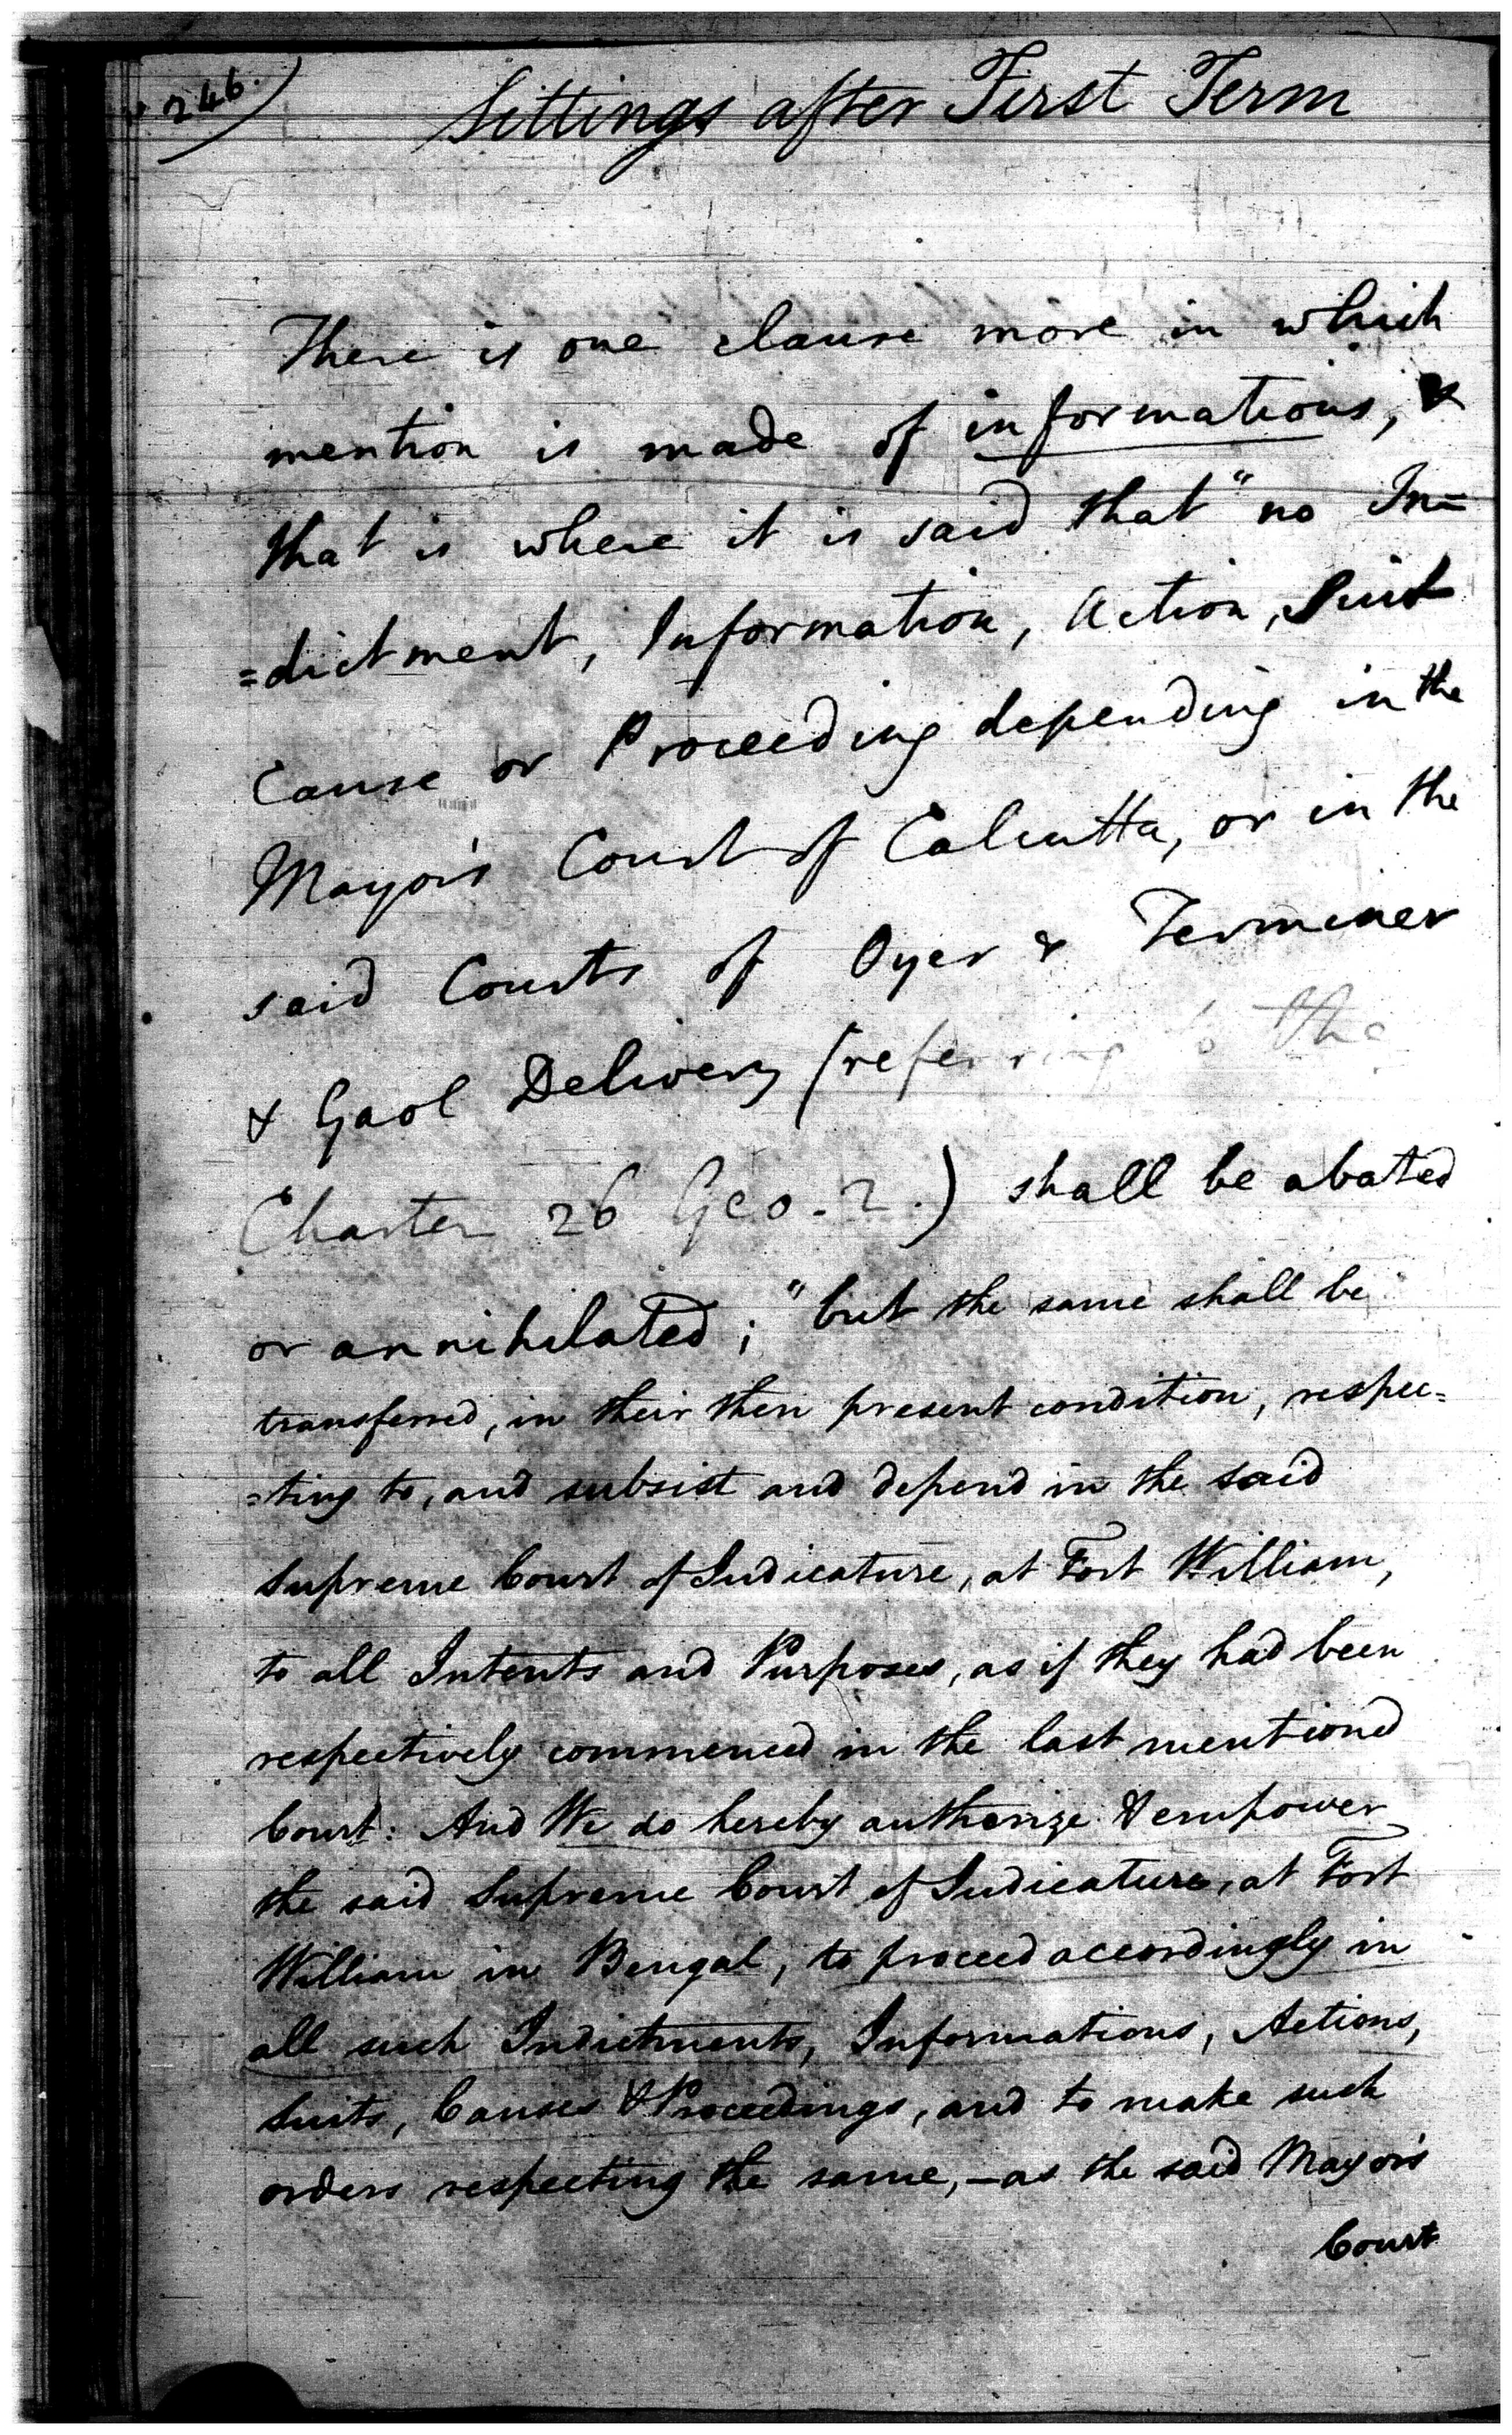 246.
Sittings after First Term
There is one clause more in which
mention is made of informations, &
that is where it is said that "no In=
=dictment, Information, Action, Suit
Cause or Proceeding depending in the
Mayor's Court of Calcutta, or in the
said Courts of Oyer & Terminer
& Gaol Delivery (referring to the
Charter 26 Geo. 2.) shall be abated
or annihilated; "but the same shall be
transferred, in their then present condition, respec=
=ting to, and subsist and depend in the said
Supreme Court of Judicature, at Fort William,
to all Intents and Purposes, as if they had been
respectively commenced in the last mentioned
Court: And We do hereby authorize & empower
the said Supreme Court of Judicature, at Fort
William in Bengal, to proceed accordingly in
all such Indictments, Informations, Actions,
Suits, Causes & Proceedings, and to make such
orders respecting the same, – as the said Mayor's
Court